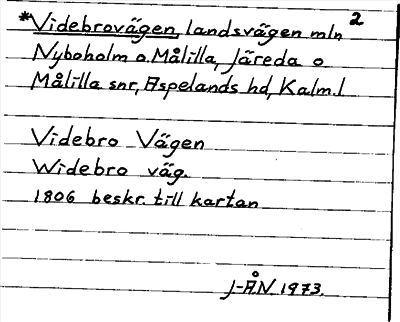 2
*Videbrovägen, landsvägen mln
Nyboholm o. Målilla, Järeda o
Målilla snr, Aspelands hd, Kalm.l
Videbro Vägen
Widebro väg.
1806 beskr. till kartan
J-ÅN. 1973.